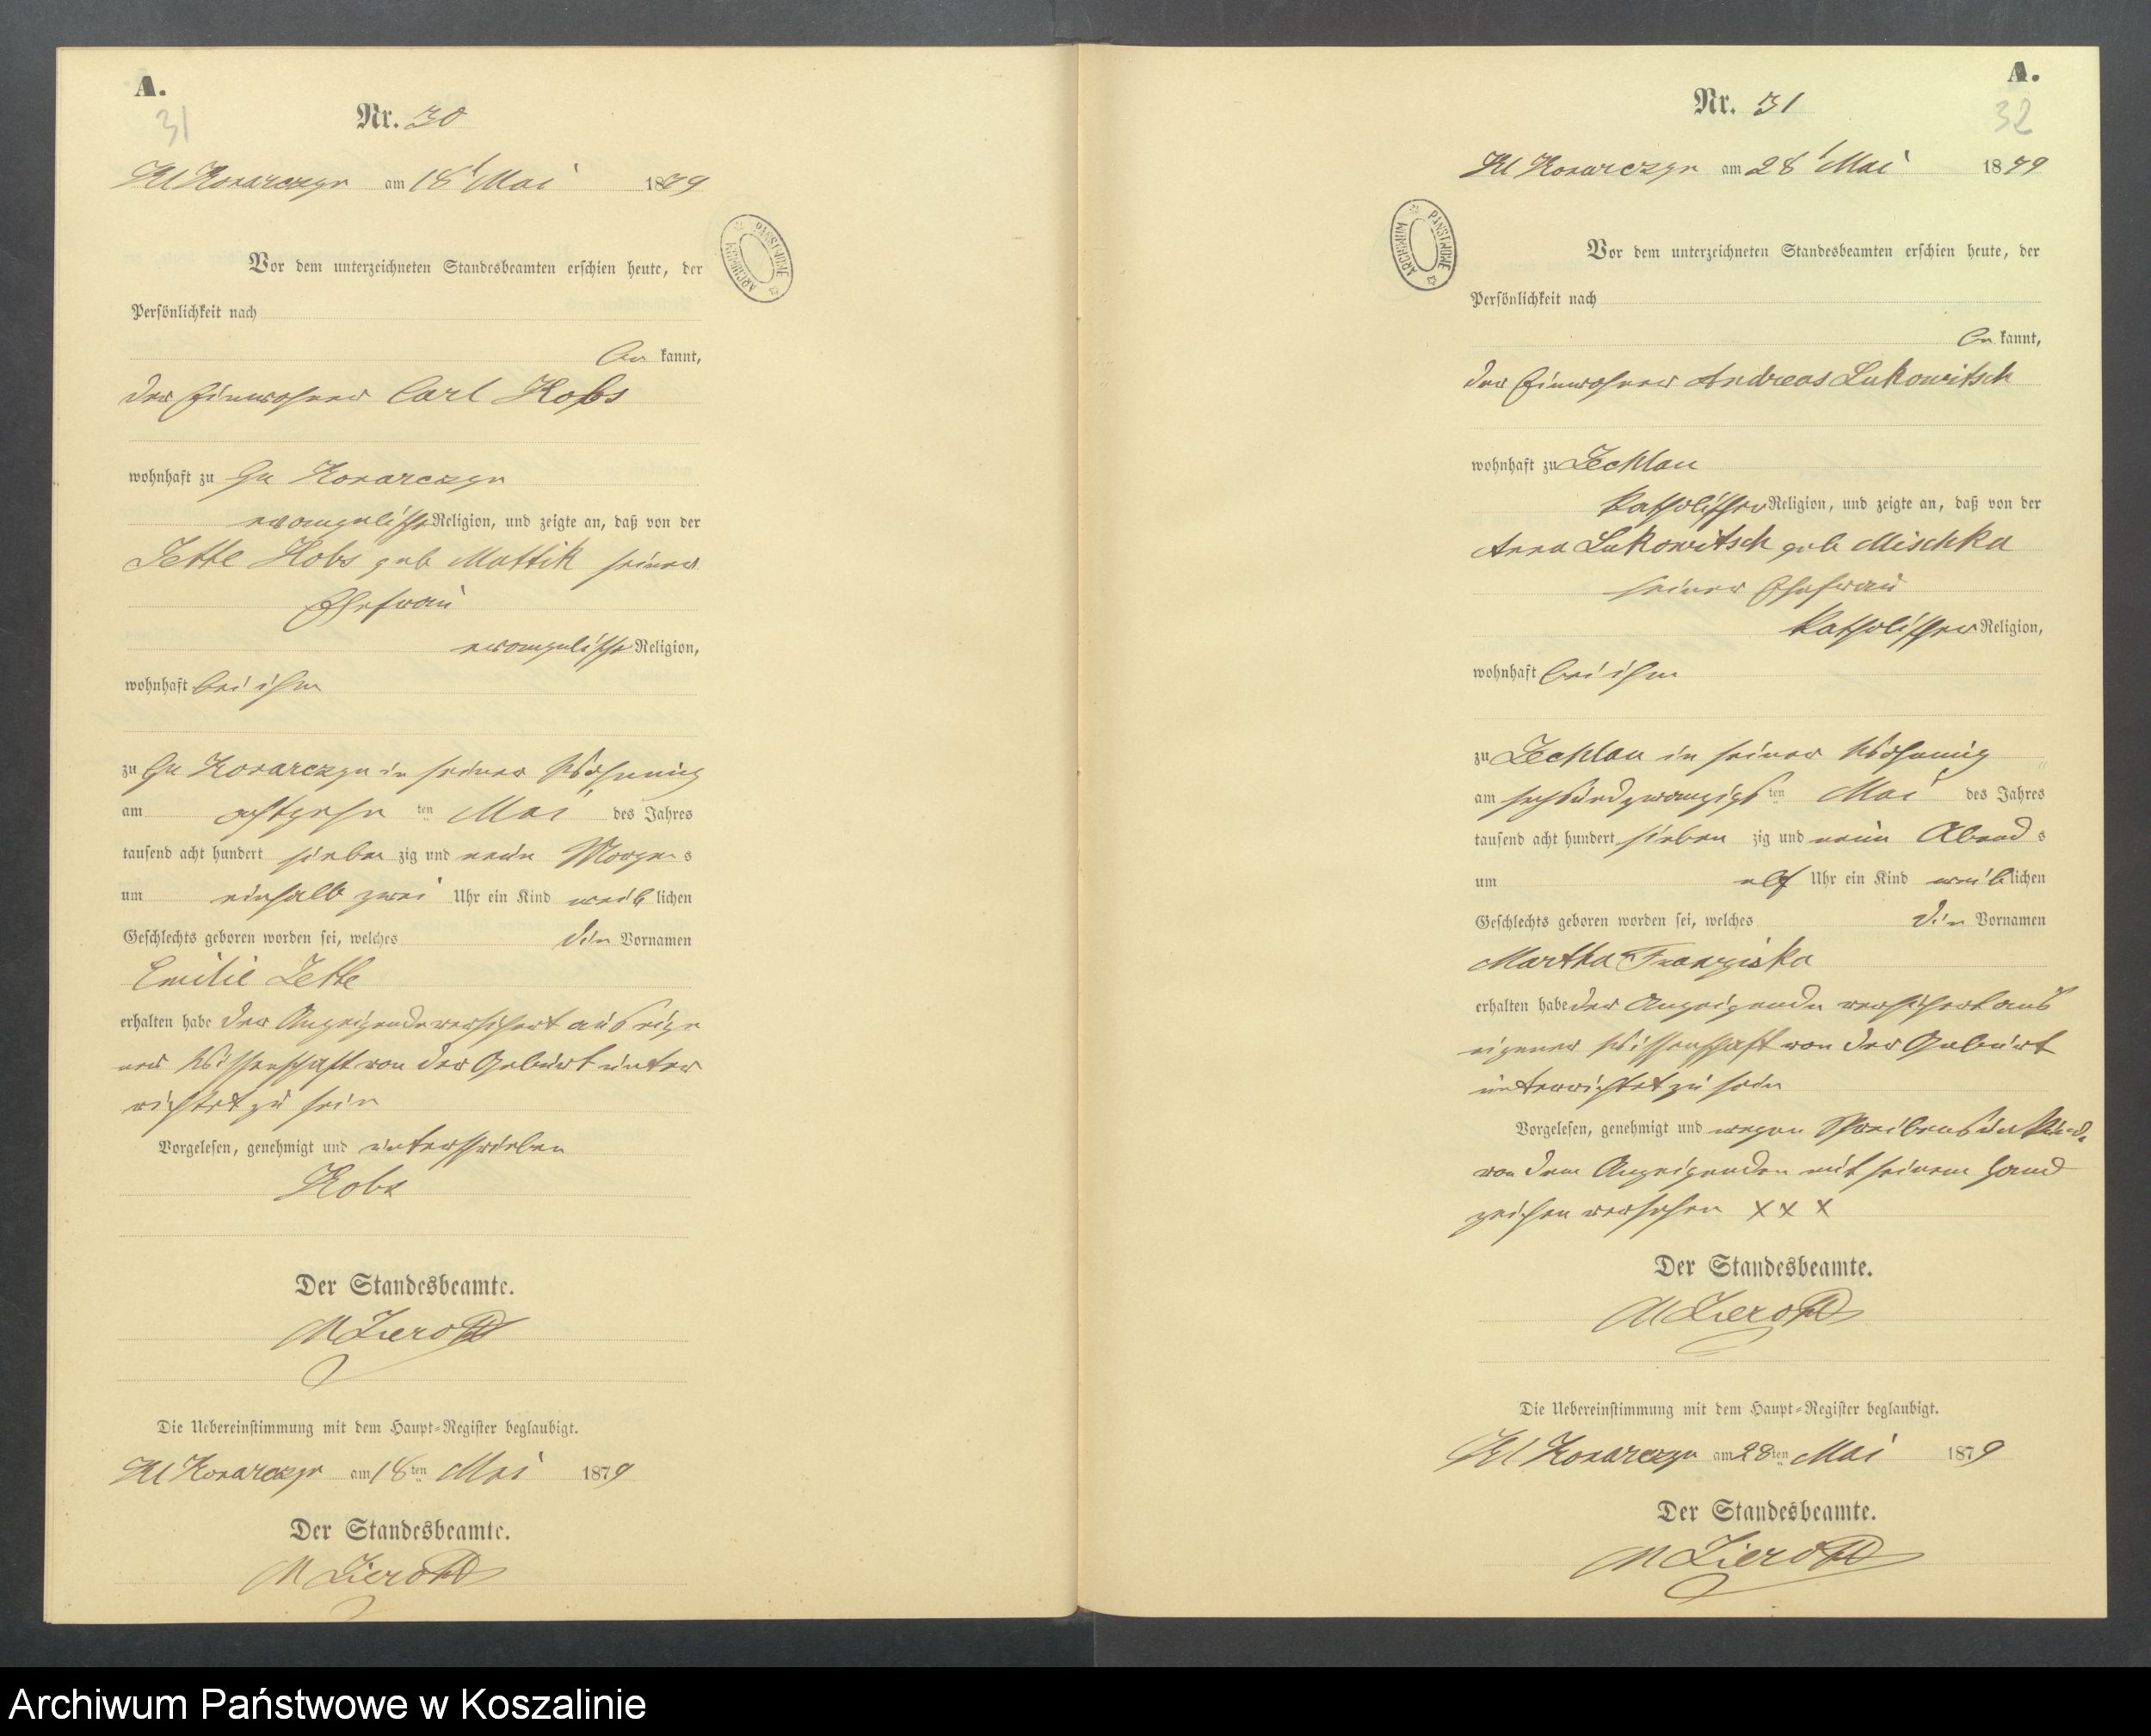 A.
31
Nr. 30
Kl Konarczyn am 18t Mai 1879
ARCHIWUM PAŃSTWOWE
Vor dem unterzeichneten Standesbeamten erschien heute, der
Persönlichkeit nach
be kannt,
der Einwohner Carl Kobs
wohnhaft zu Gr Konarczyn
evangelische Religion, und zeigte an, daß von der
Jette Kobs geb Mattik seiner
Ehefrau
evangelische Religion,
wohnhaft bei ihm
zu Gr Konarczyn in seiner Wohnung
am achtzehn ten Mai des Jahres
tausend acht hundert sieben zig und neun Morgen s
um einhalb zwei Uhr ein Kind weib lichen
Geschlechts geboren worden sei, welches die Vornamen
Emilie Jette
erhalten habe der Anzeigende versichert aus eige
ner Wissenschaft von der Geburt unter
richtet zu sein
Vorgelesen, genehmigt und unterschrieben
Kobs
Der Standesbeamte.
Die Uebereinstimmung mit dem Haupt-Register beglaubigt.
Kl Konarczyn am 18ten Mai 1879
Der Standesbeamte.
A.
32
Nr. 31
Kl Konarczyn am 28t Mai 1879
ARCHIWUM PAŃSTWOWE
Vor dem unterzeichneten Standesbeamten erschien heute, der
Persönlichkeit nach
be kannt,
der Einwohner Andreas Lukowitsch
wohnhaft zu Zechlau
katholischer Religion, und zeigte an, daß von der
Anna Lukowitsch geb Mischka
seiner Ehefrau
katholischer Religion,
wohnhaft bei ihm
zu Zechlau in seiner Wohnung
am sechsundzwanzigs ten Mai des Jahres
tausend acht hundert sieben zig und neun Abend s
um elf Uhr ein Kind weib lichen
Geschlechts geboren worden sei, welches die Vornamen
Martha Franziska
erhalten habe der Anzeigende versichert aus
eigener Wissenschaft von der Geburt
unterrichtet zu sein
Vorgelesen, genehmigt und wegen Schreibensunkunde
von dem Anzeigenden mit seinem Hand
zeichen versehen x x x
Der Standesbeamte.
Die Uebereinstimmung mit dem Haupt-Register beglaubigt.
Kl Konarczyn am 28ten Mai 1879
Der Standesbeamte.
Archiwum Państwowe w Koszalinie